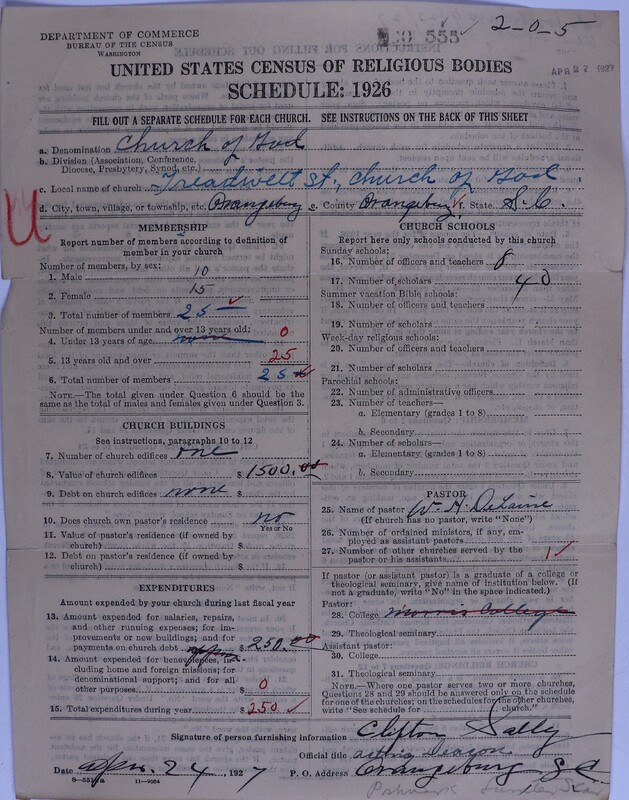 DEPARTMENT OF COMMERCE
BUREAU OF THE CENSUS
WASHINGTON
555
2-0-5
APR 27 1927
UNITED STATES CENSUS OF RELIGIOUS BODIES
SCHEDULE: 1926
FILL OUT A SEPARATE SCHEDULE FOR EACH CHURCH. SEE INSTRUCTIONS ON THE BACK OF THIS SHEET
a. Denomination Church of God
b. Division (Association, Conference, Diocese, Presbytery, Synod, etc.)
c. Local name of church Treadwell St., church of God
d. City, town, village, or township, etc. Orangeburg e. County Orangeburg f. State S.C.
MEMBERSHIP
Report number of members according to definition of
member in your church
Number of members, by sex:
1. Male 10
2. Female 15
3. Total number of members 25
Number of members under and over 13 years old:
4. Under 13 years of age none 0
5. 13 years old and over 25
6. Total number of members 25
NOTE.—The total given under Question 6 should be
same as the total of males and females given under Question 3.
CHURCH BUILDINGS
See instructions, paragraphs 10 to 12
7. Number of church edifices one
8. Value of church edifices $ 1500.00
9. Debt on church edifices $ none
10. Does church own pastor's residence no
Yes or No
11. Value of pastor's residence (if owned by
church) $
12. Debt on pastor's residence (if owned by
church) $
EXPENDITURES
Amount expended by your church during last fiscal year
13. Amount expended for salaries, repairs,
and other running expenses; for im-
provements or new buildings; and for
payments on church debt $ 250.00
14. Amount expended for benevolences, in-
cluding home and foreign missions; for
denominational support; and for all
other purposes. $ 0
15. Total expenditures during year $ 250
CHURCH SCHOOLS
Report here only schools conducted by this church
Sunday schools:
16. Number of officers and teachers 8
17. Number of scholars 40
Summer vacation Bible schools:
18. Number of officers and teachers
19. Number of scholars
Week-day religious schools:
20. Number of officers and teachers
21. Number of scholars
Parochial schools:
22. Number of administrative officers
23. Number of teachers—
a. Elementary (grades 1 to 8)
b. Secondary
24. Number of scholars—
a. Elementary (grades 1 to 8)
b. Secondary
PASTOR
25. Name of pastor W. M. DeLaine
(If church has no pastor, write "None")
26. Number of ordained ministers, if any, em-
ployed as assistant pastors
27. Number of other churches served by the
pastor or his assistants 1
If pastor (or assistant pastor) is a graduate of a college or
theological seminary, give name of institution below. (If
not a graduate, write "No" in the space indicated.)
Pastor:
28. College Morris College
29. Theological seminary
Assistant pastor:
30. College
31. Theological seminary
NOTE.—Where one pastor serves two or more churches,
Questions 28 and 29 should be answered only on the schedule
for one of the churches; on the schedules for the other churches,
write "See schedule for church."
Signature of person furnishing information Clifton Sally
Official title acting Deacon
Date Apr. 24, 1927 P. O. Address Orangeburg S.C.
11—9564